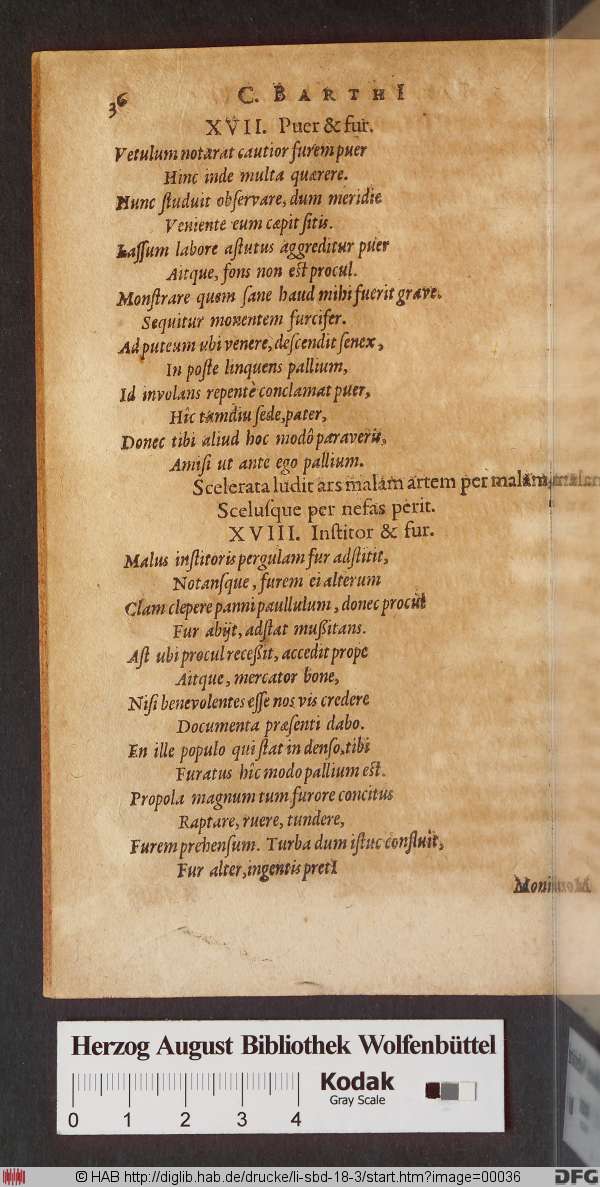 36
C. BARTHI
XVII. Puer & fur.
Vetulum notarat cautior furem puer
Hinc inde multa quærere.
Hunc ſtuduit obſervare, dum meridie
Veniente eum cæpit ſitis.
Laſſum labore aſtutus aggreditur puer
Aitque, fons non eſt procul.
Monſtrare quem ſane haud mihi fuerit grave.
Sequitur monentem furcifer.
Ad puteum ubi venere, deſcendit ſenex,
In poſte linquens pallium,
Id involans repentè conclamat puer,
Hîc tamdiu ſede, pater,
Donec tibi aliud hoc modô paraveris,
Amiſi ut ante ego pallium.
Scelerata ludit ars malam artem per malam,
Scelusque per nefas perit.
XVIII. Inſtitor & fur.
Malus inſtitoris pergulam fur adſtitit,
Notanſque, furem ei alterum
Clam clepere panni paullulum, donec procul
Fur abijt, adſtat mußitans.
Aſt ubi procul receßit, accedit prope
Aitque, mercator bone,
Niſi benevolentes eſſe nos vis credere
Documenta præſenti dabo.
En ille populo qui ſtat in denſo, tibi
Furatus hîc modo pallium eſt.
Propola magnum tum furore concitus
Raptare, ruere, tundere,
Furem prehenſum. Turba dum iſtuc confluit,
Fur alter, ingentis pretI
Herzog August Bibliothek Wolfenbüttel
Kodak
Gray Scale
0 1 2 3 4
© HAB http://diglib.hab.de/drucke/li-sbd-18-3/start.htm?image=00036
DFG